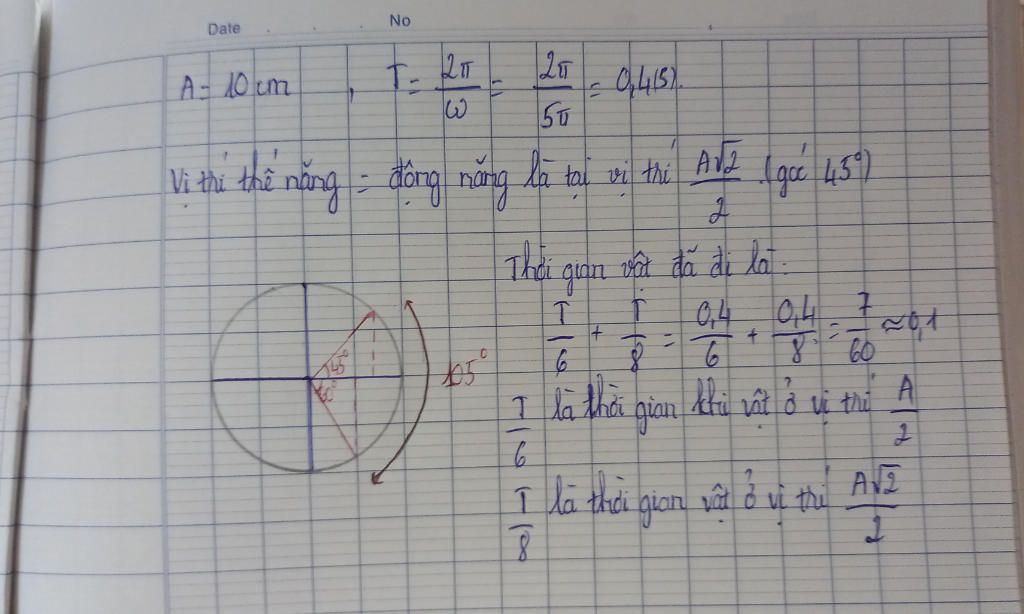 Date No
A = 10 cm , T = 2π/ω = 2π/5π = 0,4(s).
Vị trí thế năng = động năng là tại vị trí A√2/2 (góc 45°)
Thời gian vật đã đi là:
T/6 + T/8 = 0,4/6 + 0,4/8 = 7/60 ≈ 0,1
45°
60°
105°
T/6 là thời gian khi vật ở vị trí A/2
T/8 là thời gian vật ở vị trí A√2/2